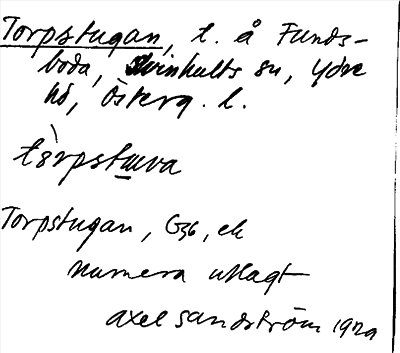 Torpstugan, t. å Funds-
boda, Svinhults sn, Ydre
hd, Österg. l.
tòrpstuva
Torpstugan, G36, ek
numera utlagt
axel sandström 1929